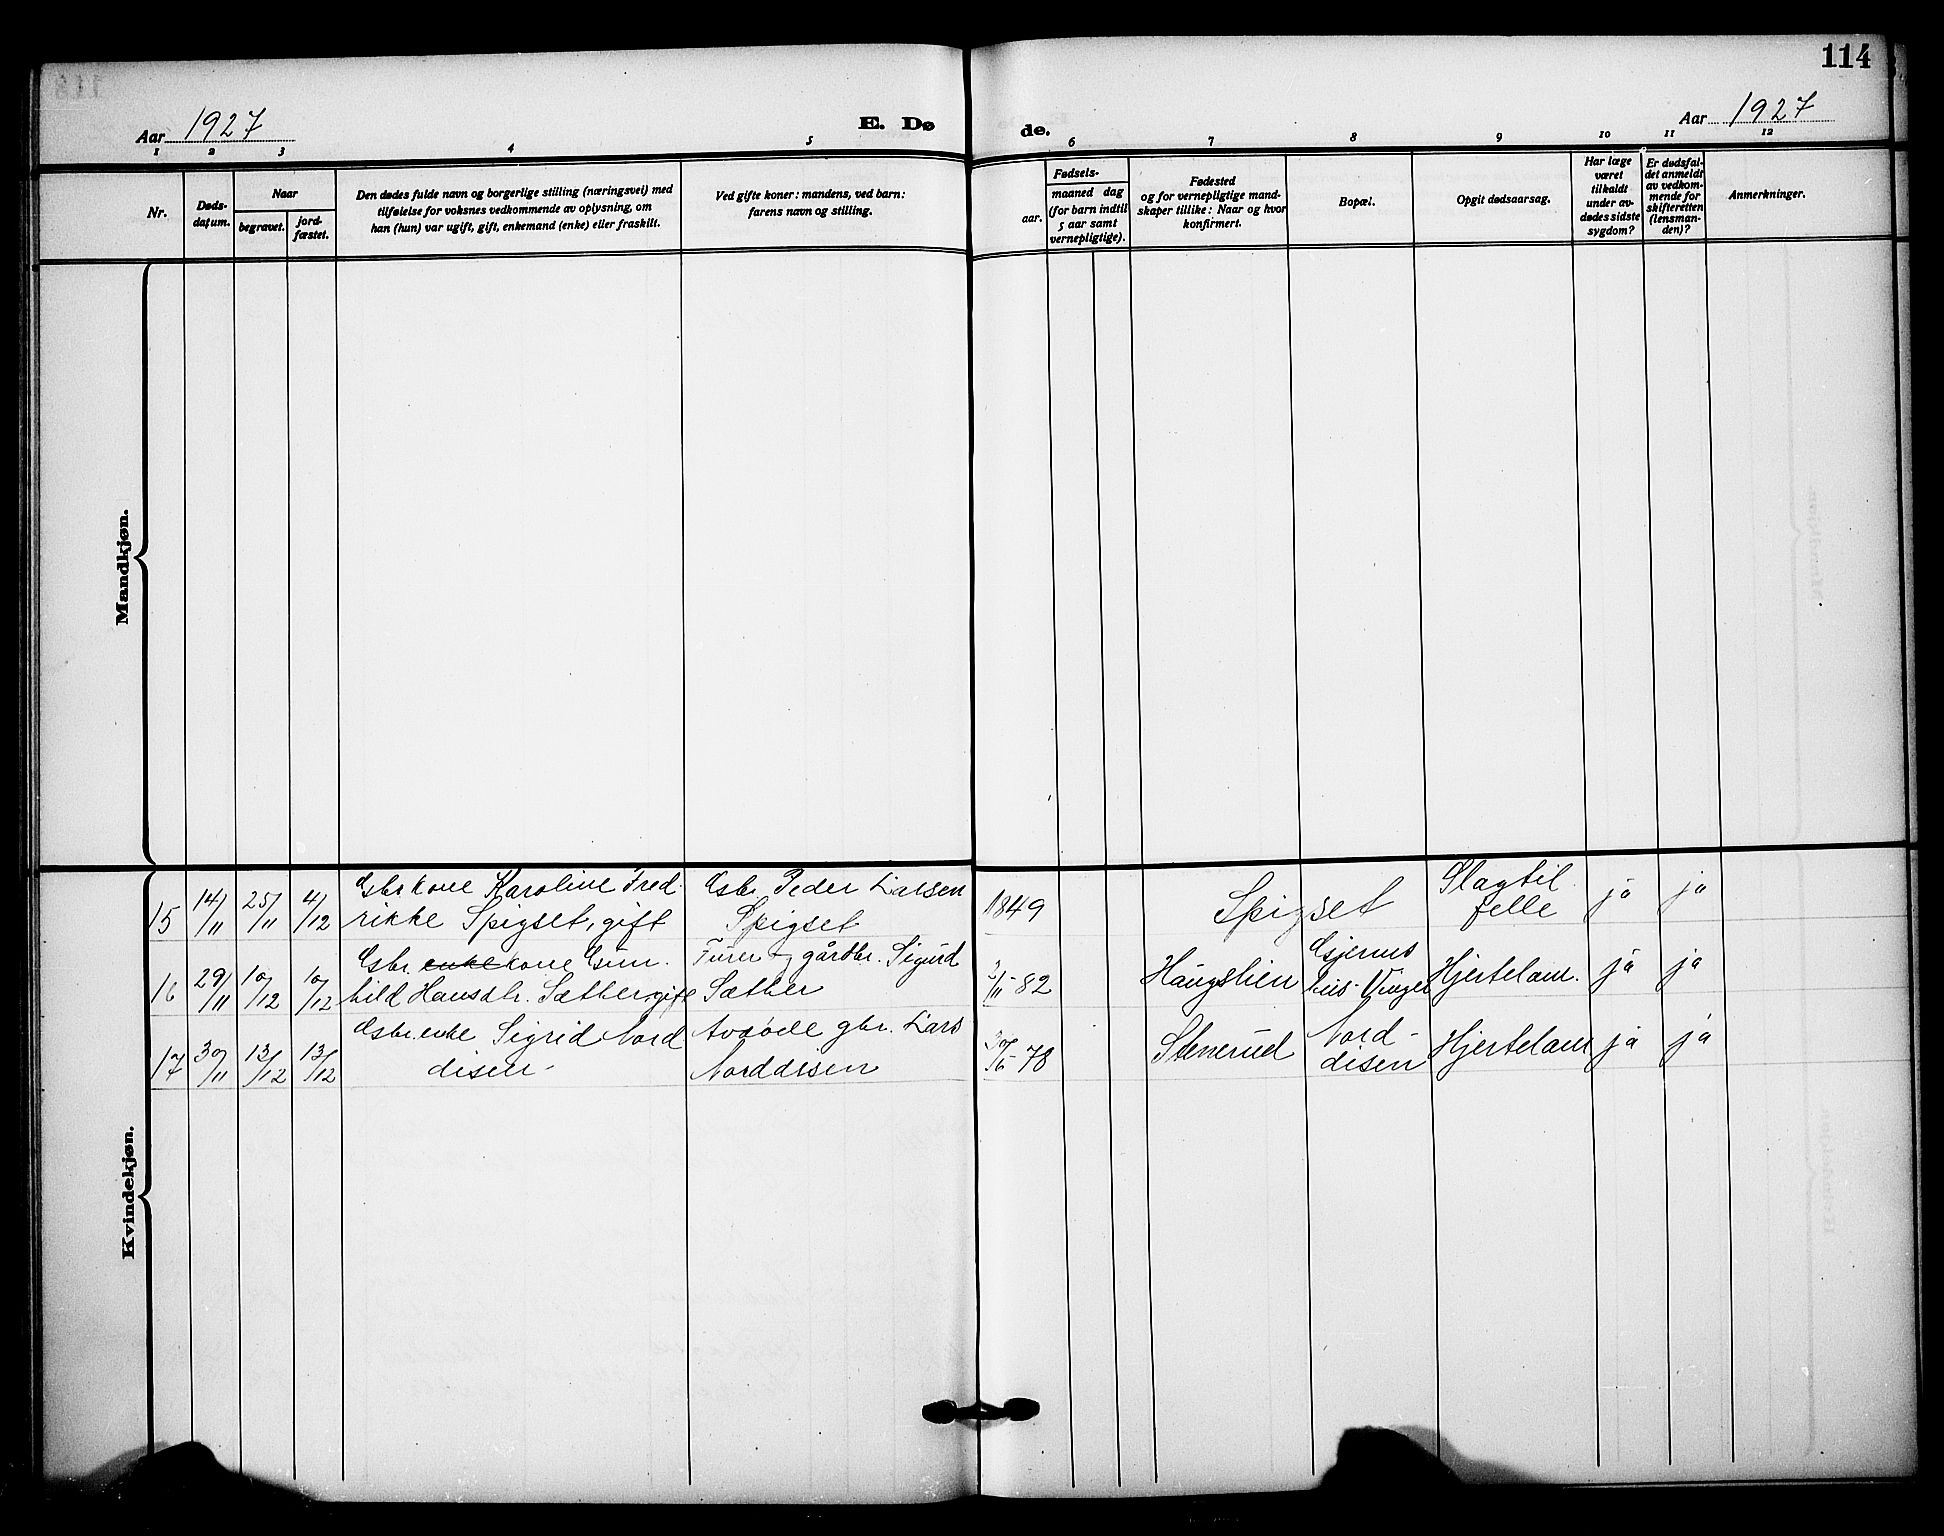 114
Aar 1927
E. Dø
de.
Aar 1927
1 2 3 4 5 6 7 8 9 10 11 12
Nr.
Døds-
datum.
Naar
begravet.
jord-
fæstet.
Den dødes fulde navn og borgerlige stilling (næringsvei) med
tilføielse for voksnes vedkommende av oplysning, om
han (hun) var ugift, gift, enkemand (enke) eller fraskilt.
Ved gifte koner: mandens, ved barn:
farens navn og stilling.
Fødsels-
aar.
maaned dag
(for barn indtil
5 aar samt
vernepligtige).
Fødested
og for vernepligtige mand-
skaper tillike: Naar og hvor
konfirmert.
Bopæl.
Opgit dødsaarsag.
Har læge
været
tilkaldt
under av-
dødes sidste
sygdom?
Er dødsfal-
det anmeldt
av vedkom-
mende for
skifteretten
(lensman-
den)?
Anmerkninger.
Mandkjøn.
Kvindekjøn.
15 14/11 25/11 4/12
Gbr kone Karoline Fred-
rikke Spigset, gift
Gbr. Peder Larsen
Spigset
1849
Spigset
Slagtil-
felle
ja ja
16 29/11 10/12 10/12
Gbr. enke kone Gun-
hild Hansdtr. Sæther, gift
Furer og gårdbr. Sigurd
Sæther
2/11-82
Haugslien
Hjertelam.
ja ja
17 30/11 13/12 13/12
Gbr. enke Sigrid Nord
disen-
Avdøde gbr. Lars
Norddisen
30/6-78
Stenerud
Nord-
disen
Hjertelam
ja ja